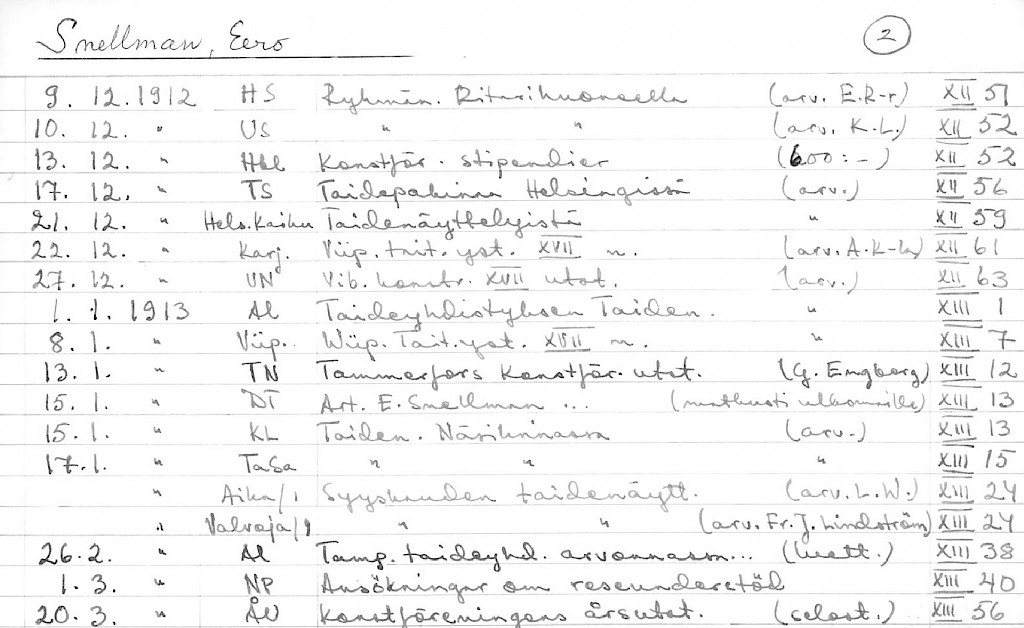 Snellman, Eero 2
9. 12. 1912 HS Ryhmän. Ritarihuoneella (arv. E.R-r) XII 51
10. 12. " US " " (arv. K.L.) XII 52
13. 12. " Hbl Konstför. stipendier (600:-) XII 52
17. 12. " TS Taidepakinaa Helsingissä (arv.) XII 56
21. 12. " Hels.Kaiku Taidenäyttelyistä " XII 59
22. 12. " Karj. Viip. tait. yst. XVII n. (arv. A.K-la) XII 61
27. 12. " VN Vib. konstv. XVII utst. (arv.) XII 63
1. 1. 1913 AL Taideyhdistyksen Taiden. " XIII 1
8. 1. " Viip. Wiip. Tait. yst. XVII n. " XIII 7
13. 1. " TN Tammerfors Konstför. utst. (G. Engberg) XIII 12
15. 1. " DT Art. E. Snellman ... (matkusti ulkomaille) XIII 13
15. 1. " KL Taiden. Näsilinnassa (arv.) XIII 13
17. 1. " TaSa " " " XIII 15
" Aika/1 Syyskauden taidenäytt. (arv. L.W.) XIII 24
" Valvoja/1 " " (arv. Fr. J. Lindström) XIII 24
26. 2. " AL Tamp. taideyhd. arvonnassa... (luett.) XIII 38
1. 3. " NP Ansökningar om reseunderstöd XIII 40
20. 3. " ÅU Konstföreningens årsutst. (selost.) XIII 56